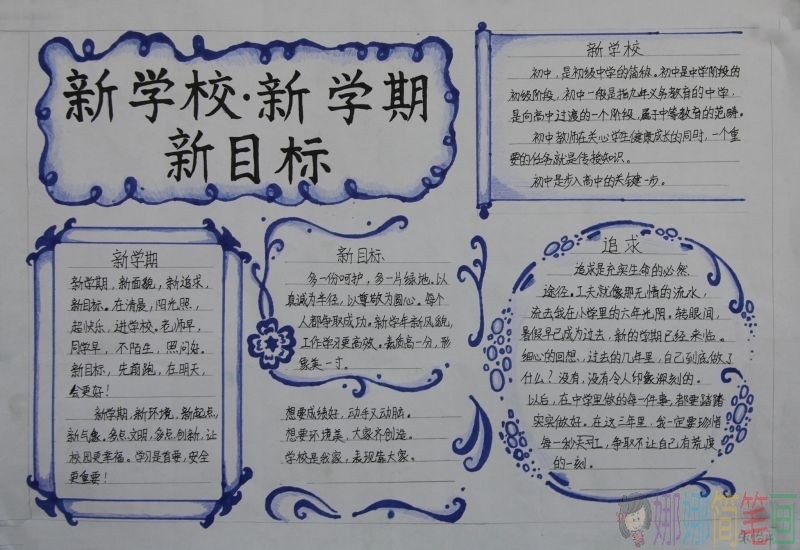 新学校·新学期
新目标
新学校
初中,是初级中学的简称。初中是中学阶段的
初级阶段,初中一般是指九年义务教育的中学,
是向高中过渡的一个阶段,属于中等教育的范畴。
初中教师在关心学生健康成长的同时,一个重
要的任务就是传授知识。
初中是步入高中的关键一步。
新学期
新学期,新面貌,新追求,
新目标。在清晨,阳光照,
起快乐,进学校。老师早,
同学早,不陌生,照问好。
新目标,先领跑,在明天,
会更好!
新学期,新环境,新起点,
新气象。多点文明,多点创新,让
校园更幸福。学习是首要,安全
更重要!
新目标
多一份呵护,多一片绿地。以
真诚为半径,以尊敬为圆心。每个
人都争取成功。新学年新风貌,
工作学习更高效。素质高一分,形
象美一寸。
想要成绩好,动手又动脑。
想要环境美,大家齐创造。
学校是我家,表现靠大家。
追求
追求是充实生命的必然
途径。工夫就像那无情的流水,
流去我在小学里的六年光阴。转眼间,
暑假早已成为过去,新的学期已经来临。
细心的回想,过去的几年里,自己到底做了
什么?没有,没有令人印象深刻的。
以后,在中学里做的每一件事,都要踏踏
实实做好。在这三年里,我一定要珍惜
每一秒天工,争取不让自己有荒废
的一刻。
娜娜简笔画